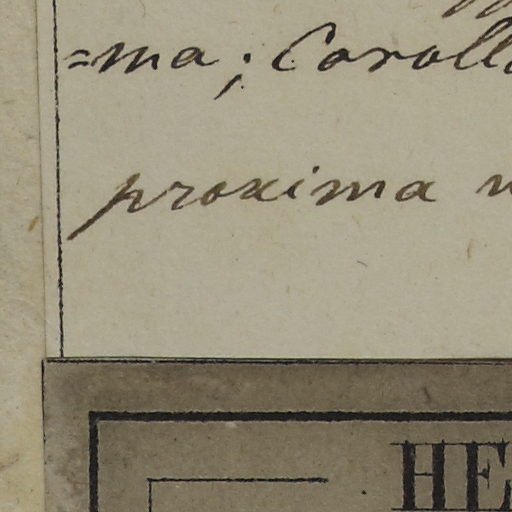 =ma; Coroll
proxima
HE